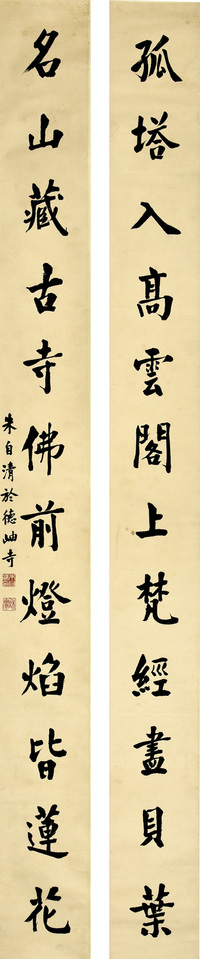 孤塔入高雲閣上梵經盡貝葉
名山藏古寺佛前燈焰皆蓮花
朱自清於德岫寺